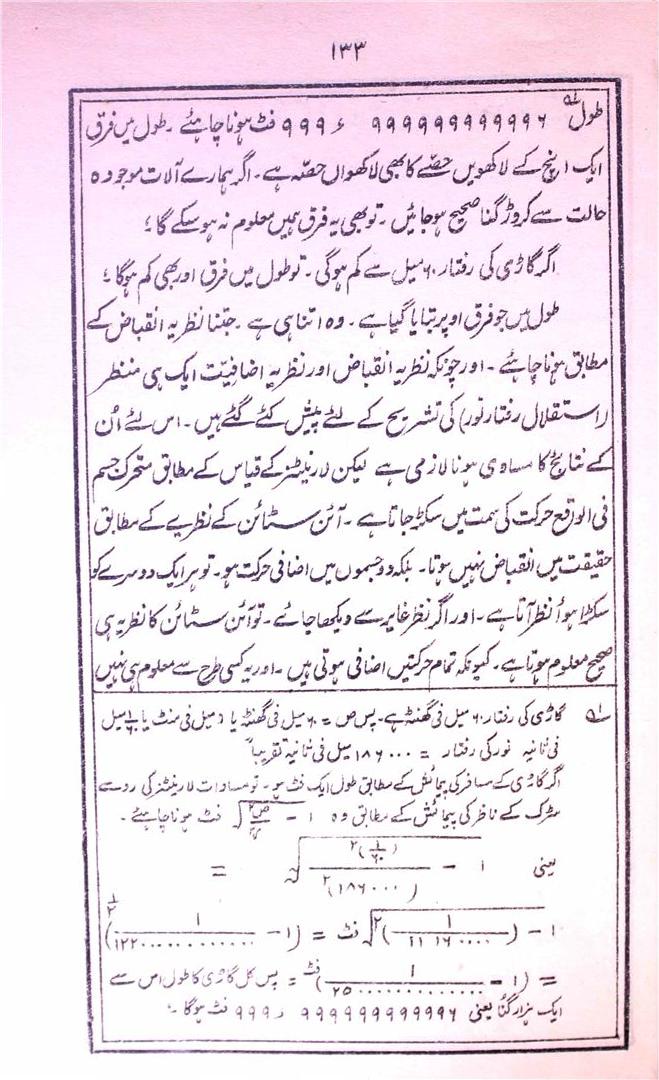 ۱۳۳
طول لہ ۹۹۹۹۹۹۹۹۹۹۹۶ ء ۹۹۹ فٹ ہونا چاہئے ۔ طول میں فرق
ایک انچ کے لاکھویں حصّے کا بھی لاکھواں حصّہ ہے ۔ اگر ہمارے آلات موجودہ
حالت سے کروڑ گنا صحیح ہو جائیں ۔ تو بھی یہ فرق ہمیں معلوم نہ ہو سکے گا ؛
اگر گاڑی کی رفتار ۶۰ میل سے کم ہوگی ۔ تو طول میں فرق اور بھی کم ہوگا ؛
طول میں جو فرق اوپر بتایا گیا ہے ۔ وہ اتنا ہی ہے ۔ جتنا نظریہ انقباض کے
مطابق ہونا چاہئے ۔ اور چونکہ نظریہ انقباض اور نظریہ اضافیّت ایک ہی منظر
(استقلال رفتار نور) کی تشریح کے لئے پیش کئے گئے ہیں ۔ اس لئے اُن
کے نتایج کا مساوی ہونا لازمی ہے لیکن لارنیٹنز کے قیاس کے مطابق متحرک جسم
فی الواقع حرکت کی سمت میں سکڑ جاتا ہے ۔ آئن سٹائن کے نظریے کے مطابق
حقیقت میں انقباض نہیں ہوتا ۔ بلکہ دو جسموں میں اضافی حرکت ہو ۔ تو ہر ایک دوسرے کو
سکڑا ہوأ نظر آتا ہے ۔ اور اگر نظر غایر سے دیکھا جائے ۔ تو آئن سٹائن کا نظریہ ہی
صحیح معلوم ہوتا ہے ۔ کیونکہ تمام حرکتیں اضافی ہوتی ہیں ۔ اور یہ کسی طرح سے معلوم ہی نہیں
لہ گاڑی کی رفتار ۶۰ میل فی گھنٹہ ہے ۔ پس ص = ۶۰ میل فی گھنٹہ یا ۱ میل فی منٹ یا ۱/۶۰ میل
فی ثانیہ نور کی رفتار = ۱۸۶۰۰۰ میل فی ثانیہ تقریباً
اگر گاڑی کے مسافر کی پیمائش کے مطابق طول ایک فٹ ہو ۔ تو مساوات لارنیٹنز کی رو سے
سڑک کے ناظر کی پیمائش کے مطابق وہ √(۱ − ص۲/) فٹ ہونا چاہئے ۔
یعنی √(۱ − (۱/۶۰)۲ / (۱۸۶۰۰۰)۲) =
√(۱ − (۱/۱۱۱۶۰۰۰۰)۲) فٹ = (۱ − ۱/۱۲۲۰۰۰۰۰۰۰۰۰۰۰۰)۱/۲
= (۱ − ۱/۲۵۰۰۰۰۰۰۰۰۰۰۰۰۰) فٹ = پس کل گاڑی کا طول اس سے
ایک ہزار گنا یعنی ۹۹۹۹۹۹۹۹۹۹۹۶ ء ۹۹۹ فٹ ہوگا ۔